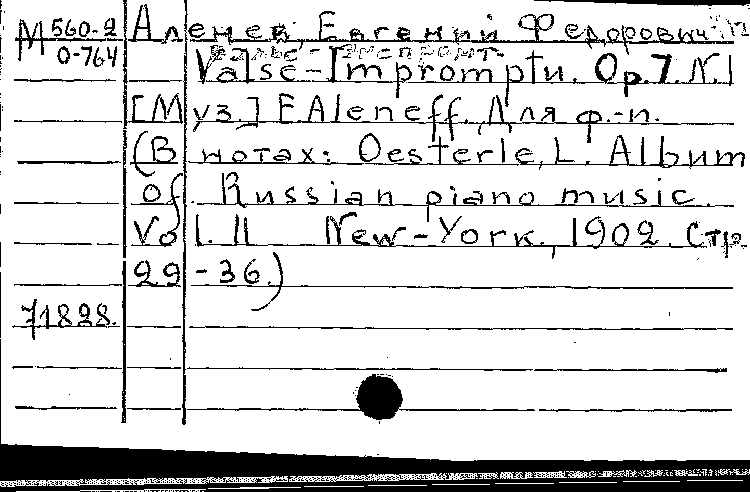 М 560-2 Аленев, Евгений Федорович
0-764 Вальс-Экспромт.
Valse-Impromptu. Op.7. N.1
[Муз.] E.Aleneff. Для ф.-п.
(В нотах: Oesterle, L. Album
of Russian piano music.
Vol. II New-York, 1902. Стр.
29-36.)
71828.